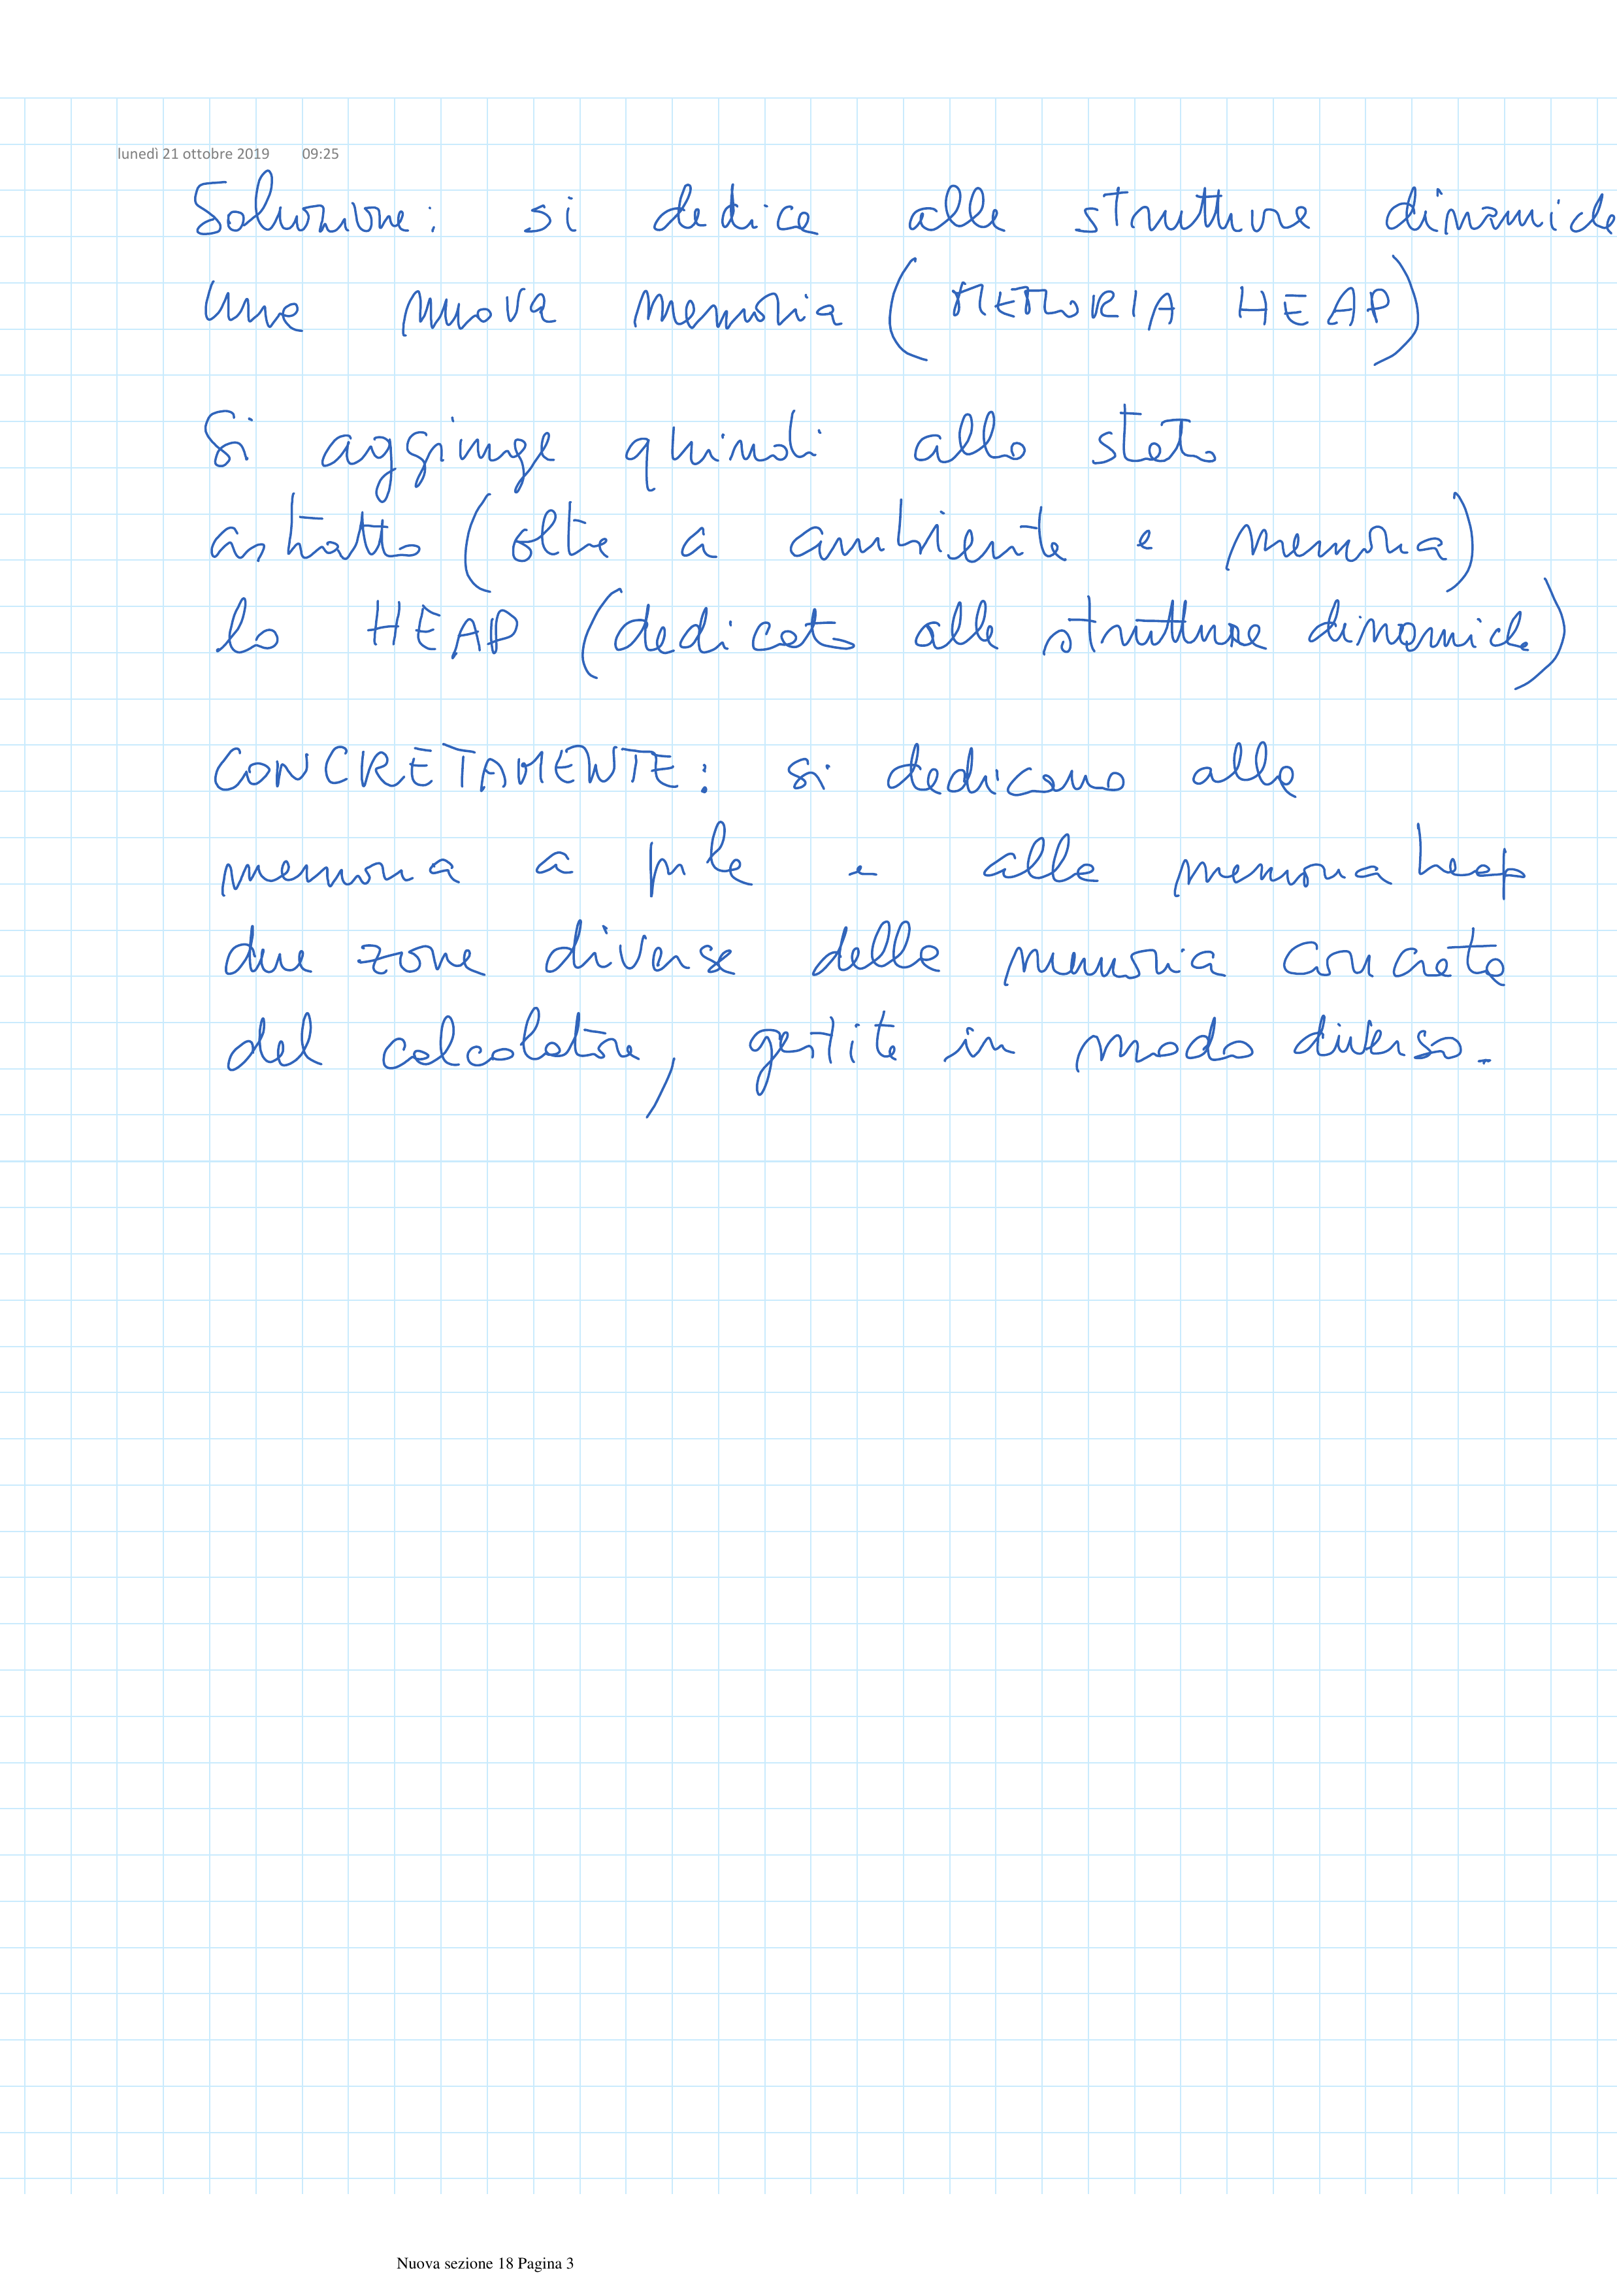 lunedì 21 ottobre 2019 09:25
Soluzione: si dedica alle strutture dinamiche
una nuova memoria (MEMORIA HEAP)
Si aggiunge quindi allo stato
astratto (oltre a ambiente e memoria)
lo HEAP (dedicato alle strutture dinamiche)
CONCRETAMENTE: si dedicano alla
memoria a pila e alla memoria heap
due zone diverse della memoria concreta
del calcolatore, gestite in modo diverso.
Nuova sezione 18 Pagina 3